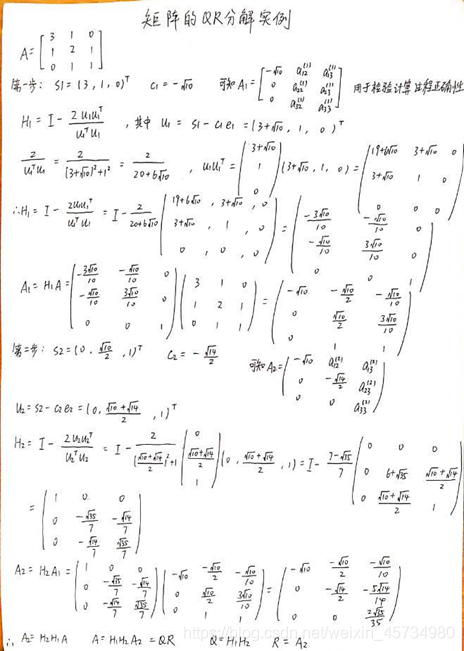 矩阵的QR分解实例
A = [3 1 0; 1 2 1; 0 1 1]
第一步: S1 = (3, 1, 0)^T C1 = -√10 可知 A1 = [-√10 a12^(1) a13^(1); 0 a22^(1) a23^(1); 0 a32^(1) a33^(1)] 用于检验计算过程正确性
H1 = I - 2u1u1^T / u1^T u1 , 其中 u1 = S1 - C1e1 = (3+√10, 1, 0)^T
2 / u1^T u1 = 2 / ((3+√10)^2 + 1^2) = 2 / (20+6√10) , u1u1^T = (3+√10; 1; 0) (3+√10, 1, 0) = (19+6√10 3+√10 0; 3+√10 1 0; 0 0 0)
∴ H1 = I - 2u1u1^T / u1^T u1 = I - 2 / (20+6√10) (19+6√10, 3+√10, 0; 3+√10, 1, 0; 0, 0, 0) = (-3√10/10 -√10/10 0; -√10/10 3√10/10 0; 0 0 1)
A1 = H1A = (-3√10/10 -√10/10 0; -√10/10 3√10/10 0; 0 0 1) (3 1 0; 1 2 1; 0 1 1) = (-√10 -√10/2 -√10/10; 0 √10/2 3√10/10; 0 1 1)
第二步: S2 = (0, √10/2, 1)^T C2 = -√14/2 可知 A2 = (-√10 a12^(2) a13^(2); 0 -√14/2 a23^(2); 0 0 a33^(2))
U2 = S2 - C2e2 = (0, (√10+√14)/2, 1)^T
H2 = I - 2U2U2^T / U2^T U2 = I - 2 / (((√10+√14)/2)^2 + 1) (0; (√10+√14)/2; 1) (0, (√10+√14)/2, 1) = I - (7-√35)/7 (0 0 0; 0 6+√35 (√10+√14)/2; 0 (√10+√14)/2 1)
= (1 0 0; 0 -√35/7 -√14/7; 0 -√14/7 √35/7)
A2 = H2A1 = (1 0 0; 0 -√35/7 -√14/7; 0 -√14/7 √35/7) (-√10 -√10/2 -√10/10; 0 √10/2 3√10/10; 0 1 1) = (-√10 -√10/2 -√10/10; 0 -√14/2 -5√14/14; 0 0 2√35/35)
∴ A2 = H2H1A A = H1H2A2 = QR Q = H1H2 R = A2
https://blog.csdn.net/weixin_45734980